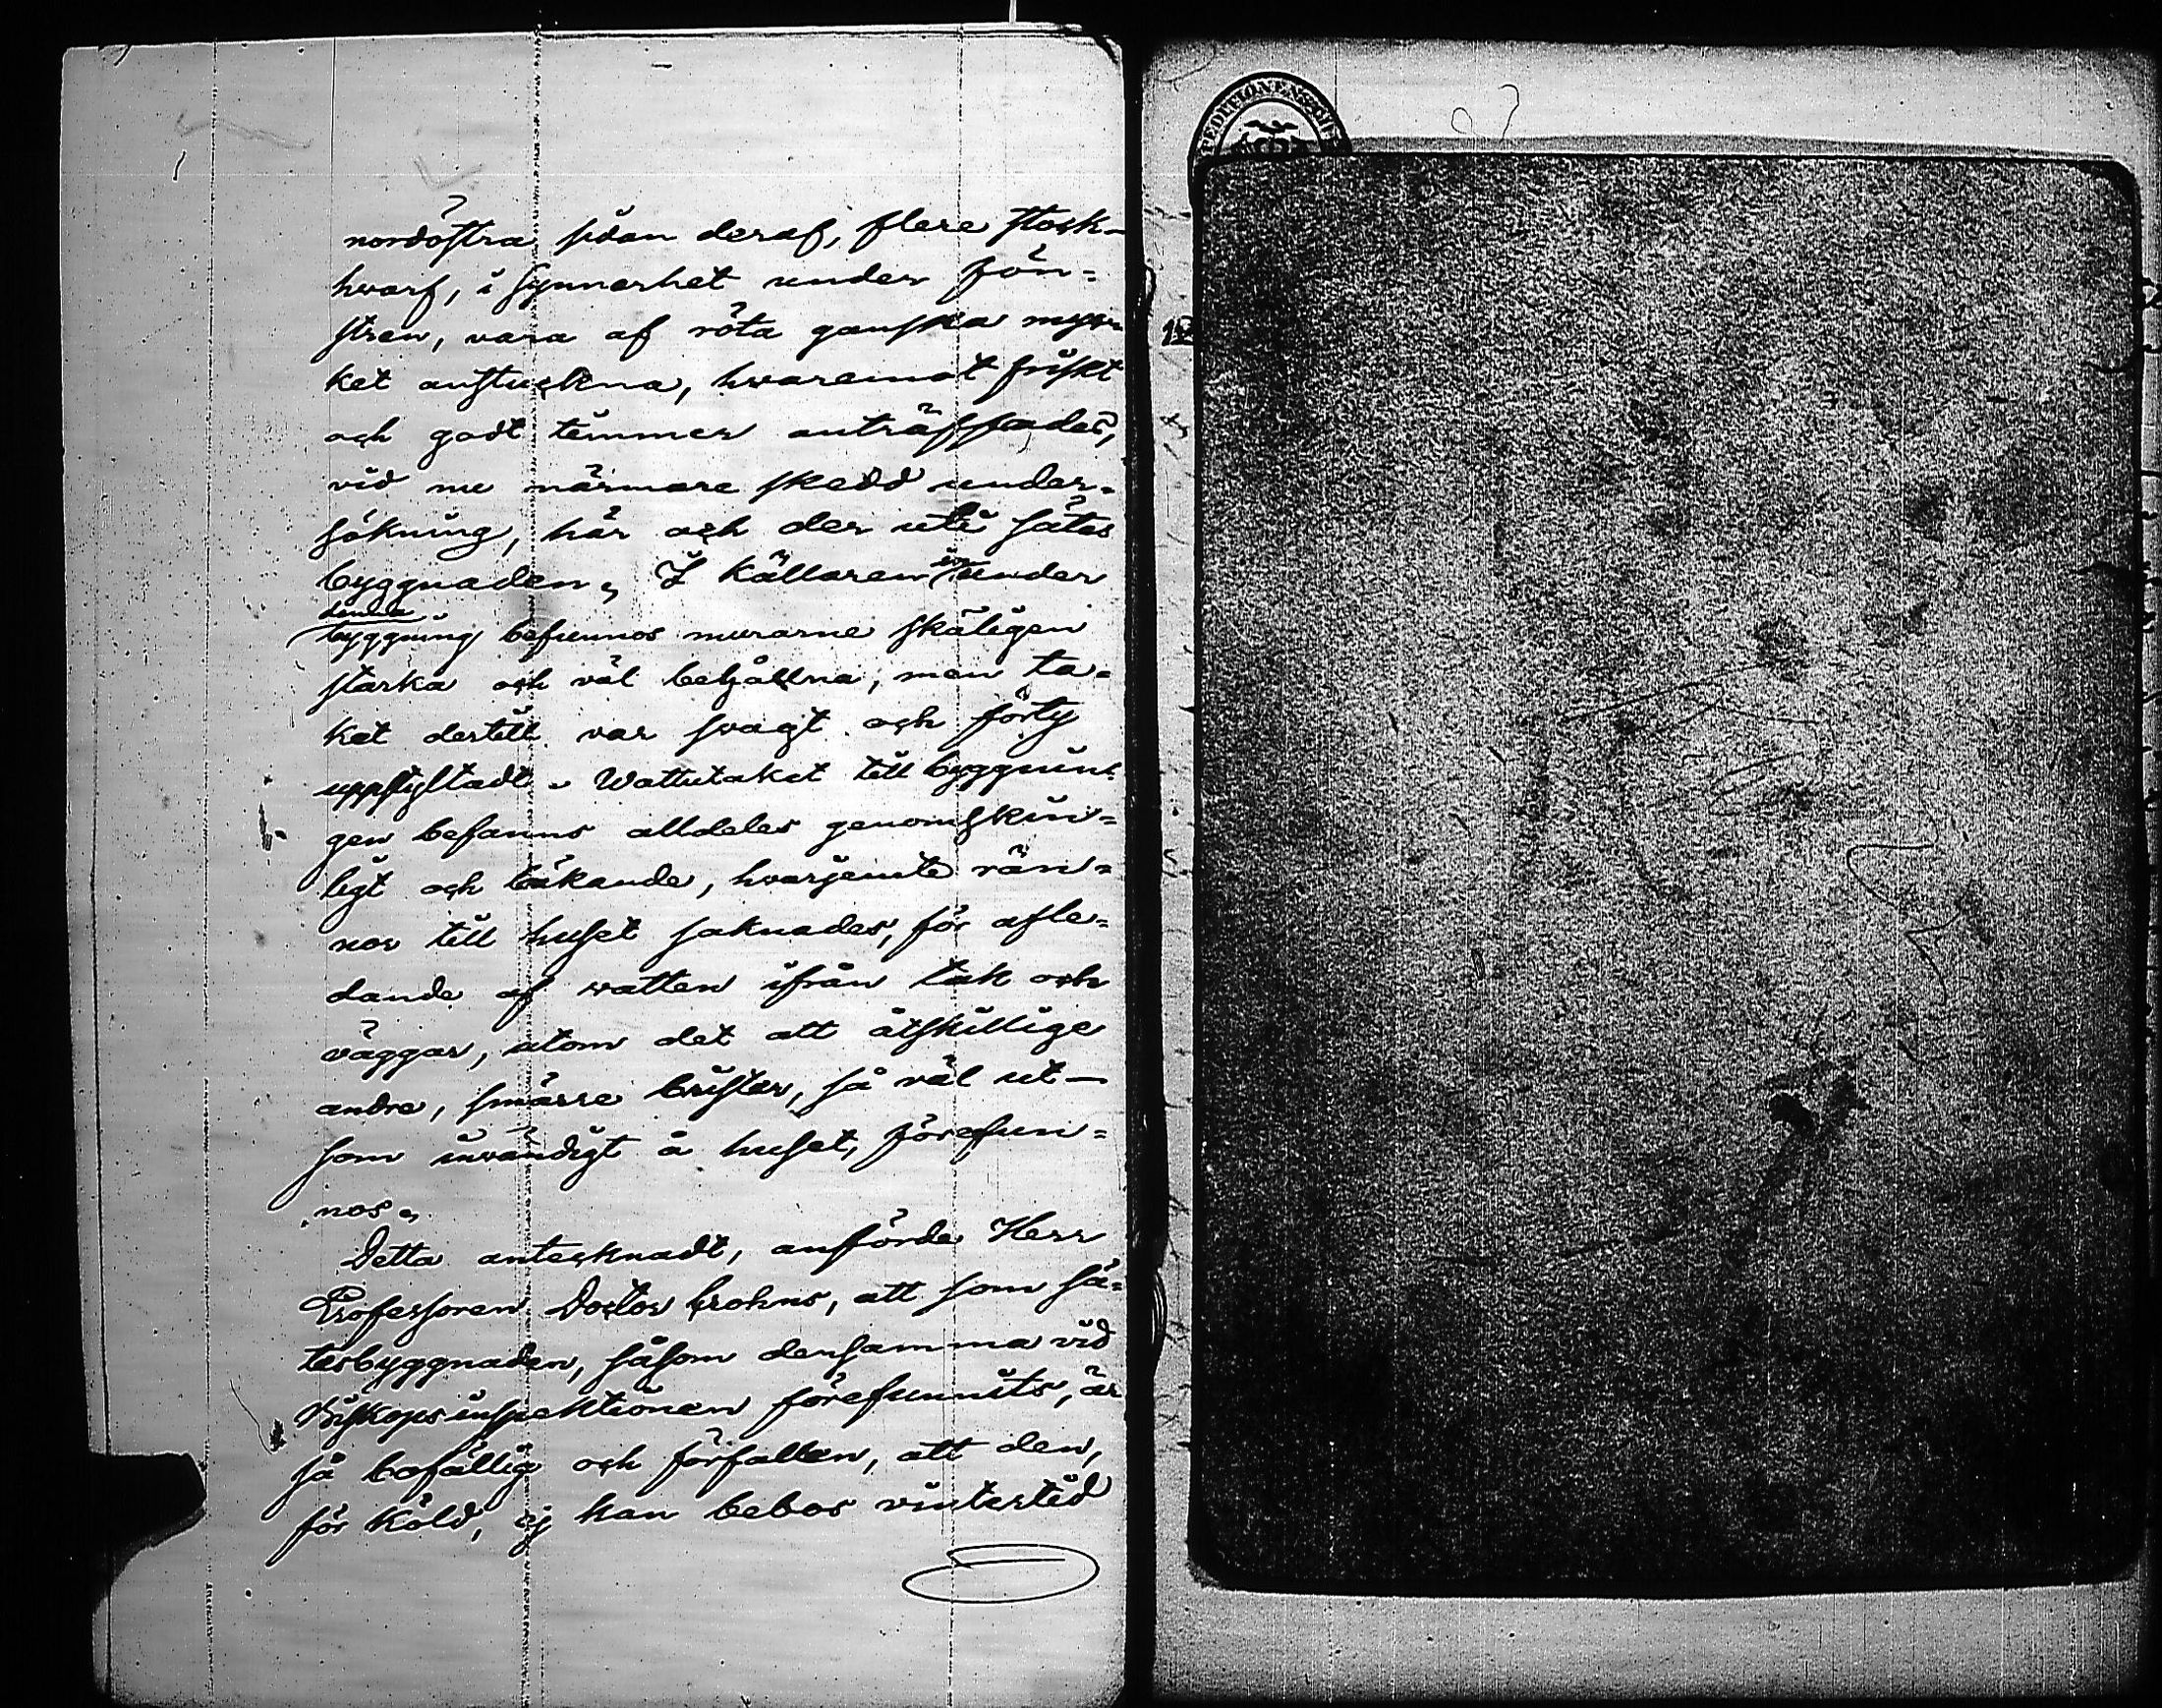 nordöstra sidan deraf, flere stock-
hvarf, i synnerhet under fön=
stren, vara af röta ganska myc-
ket anstuckna, hvaremot friskt
och godt timmer anträffades,
vid nu närmare skedd under=
sökning, här och der uti sätes
byggnaden. I källaren inunder
denna
byggning befunnos murarne skäligen
starka och väl behållna, men ta=
ket dertill var svagt och förty
uppstyltadt. Wattutaket till byggnin=
gen befanns alldeles genomskin=
ligt och läkande, hvarjemte rän=
nor till huset saknades, för afle=
dande af vatten ifrån tak och
väggar, utom det att åtskillige
andre, smärre brister, så väl ut-
som invändigt å huset, förefun=
nos.
Detta antecknadt, anförde Herr
Professoren Doctor Crohns, att som sä=
tesbyggnaden, såsom densamma vid
Biskopsinspektionen förefunnits, är
så bofällig och förfallen, att den,
för köld, ej kan bebos vintertid